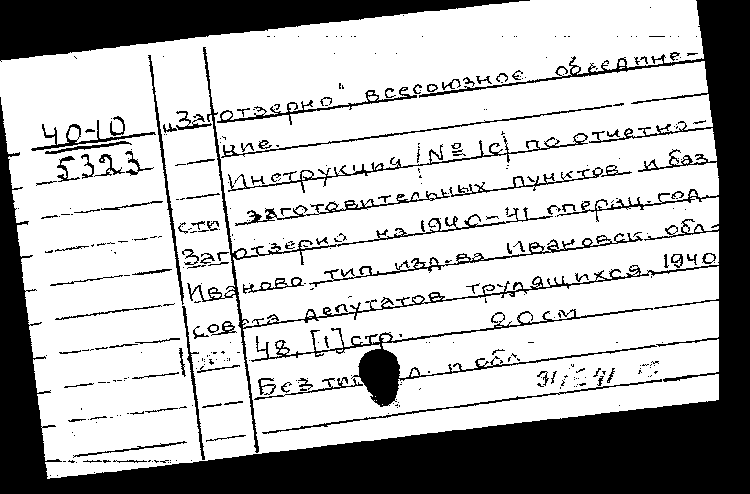 40-10
5323
„Заготзерно", всесоюзное объедине-
ние.
Инструкция /№ 1с/ по отчетно-
сти заготовительных пунктов и баз
Заготзерно на 1940-41 операц. год.
Иваново, тип. изд-ва Ивановск. обл-
совета депутатов трудящихся, 1940
48, [1] стр. 20 см
Без тит. л. и обл.